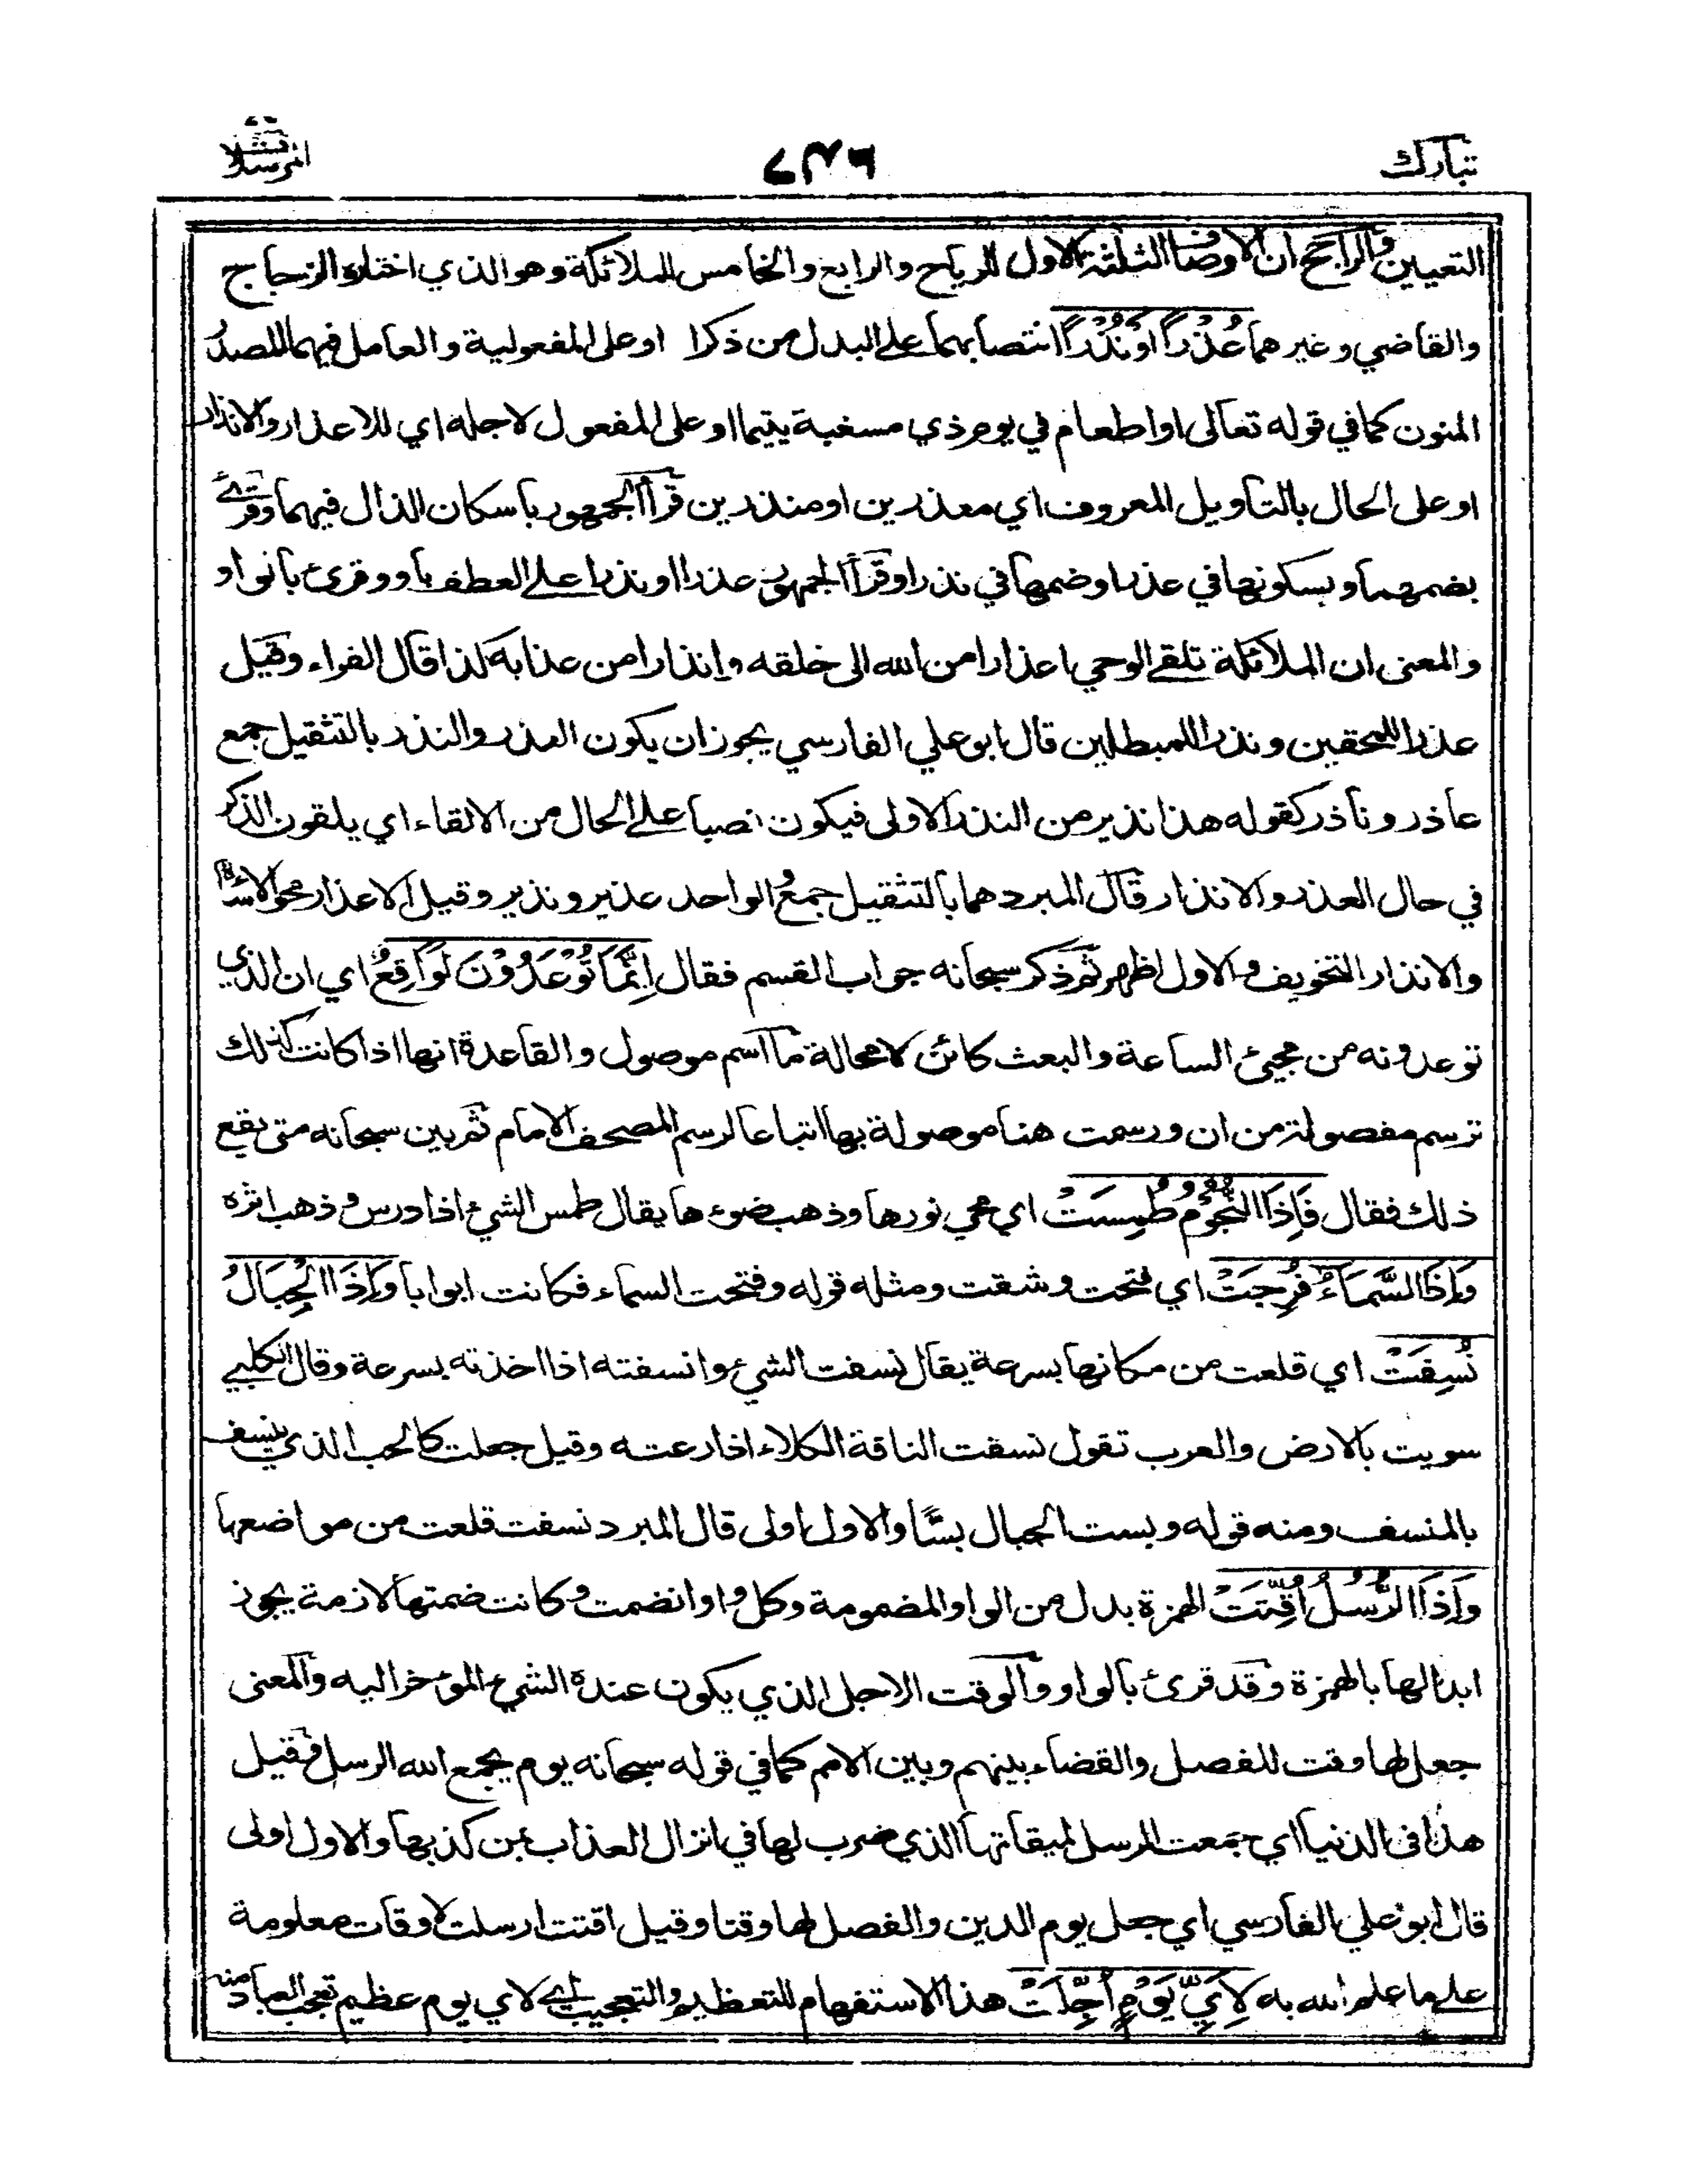 تبارك
المرسلات
التعيين والراجح ان الاوصاف الثلثة الاول للرياح والرابع والخامس للملائكة وهو الذي اختاره الزجاج
والقاضي وغيرهما عُذْرًا اَوْ نُذْرًا انتصابهما على البدل من ذكرا او على المفعولية والعامل فيهما المصدر
المنون كما في قوله تعالى او اطعام في يوم ذي مسغبة يتيما او على المفعول لاجله اي للاعذار والانذار
او على الحال بالتاويل المعروف اي معذرين او منذرين قرأ الجمهور باسكان الذال فيهما وقرئ
بضمهما وبسكونها في عذرا وضمها في نذرا وقرأ الجمهور عذرا او نذرا على العطف باو وقرئ بانواو
والمعنى ان الملائكة تلقي الوحي اعذارا من الله الى خلقه وانذارا من عذابه كذا قال الفراء وقيل
عذرا للمحقين ونذرا للمبطلين قال ابو علي الفارسي يجوز ان يكون العذر والنذر بالتثقيل جمع
عاذر وناذر كقوله هذا نذير من النذر الاولى فيكون نصبا على الحال من الالقاء اي يلقون الذكر
في حال العذر والانذار قال المبرد هما بالتثقيل جمع الواحد عذير ونذير وقيل الاعذار محو الاساءة
والانذار التخويف والاول اظهر ثم ذكر سبحانه جواب القسم فقال اِنَّمَا تُوْعَدُوْنَ لَوَاقِعٌ اي ان الذي
توعدونه من مجيئ الساعة والبعث كائن لا محالة ما اسم موصول والقاعدة انها اذا كانت كذلك
ترسم مفصولة من ان ورسمت هنا موصولة بها اتباعا لرسم المصحف الامام ثم بين سبحانه متى يقع
ذلك فقال فَاِذَا النُّجُوْمُ طُمِسَتْ اي محي نورها وذهب ضوءها يقال طمس الشيء اذا درس وذهب اثره
وَاِذَا السَّمَاءُ فُرِجَتْ اي فتحت وشقت ومثله قوله وفتحت السماء فكانت ابوابا وَاِذَا الْجِبَالُ
نُسِفَتْ اي قلعت من مكانها بسرعة يقال نسفت الشيء وانسفته اذا اخذته بسرعة وقال الكلبي
سويت بالارض والعرب تقول نسفت الناقة الكلاء اذا رعته وقيل جعلت كالحب الذي ينسف
بالمنسف ومنه قوله وبست الجبال بسًّا والاول اولى قال المبرد نسفت قلعت من مواضعها
وَاِذَا الرُّسُلُ اُقِّتَتْ الهمزة بدل من الواو المضمومة وكل واو انضمت وكانت ضمتها لازمة يجوز
ابدالها بالهمزة وقد قرئ بالواو والوقت الاجل الذي يكون عنده الشيء المؤخر اليه والمعنى
جعل لها وقت للفصل والقضاء بينهم وبين الامم كما في قوله سبحانه يوم يجمع الله الرسل وقيل
هذا في الدنيا اي جمعت الرسل لميقاتها الذي ضرب لها في انزال العذاب بمن كذبها والاول اولى
قال ابو علي الفارسي اي جعل يوم الدين والفصل لها وقتا وقيل اقتت ارسلت لاوقات معلومة
على ما علم الله به لِاَيِّ يَوْمٍ اُجِّلَتْ هذا الاستفهام للتعظيم والتعجيب اي لاي يوم عظيم تعجب العباد منه